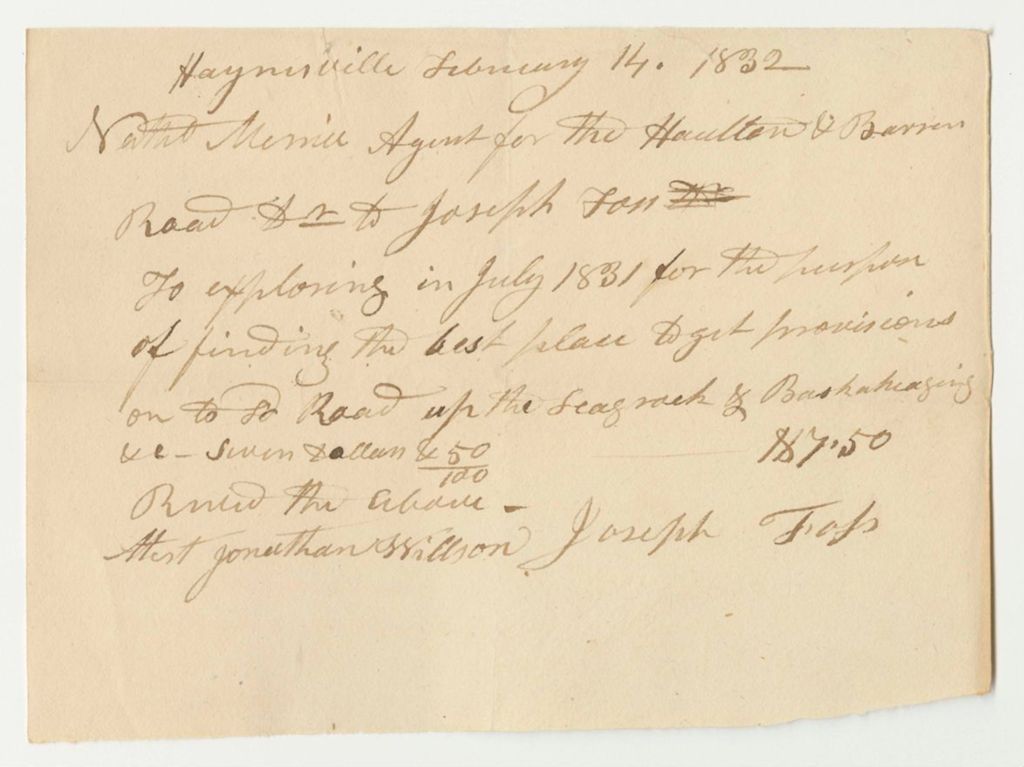 Haynesville February 14. 1832
Nathl Merrill Agent for the Haulton & Barren
Road Dr to Joseph Foss
To exploring in July 1831 for the purpose
of finding the best place to get provisions
on to sd Road up the Seagrock & Baskaheaging
&c - Seven Dollars & 50/100 $7.50
Recved the above -
Attest Jonathan Willson Joseph Foss